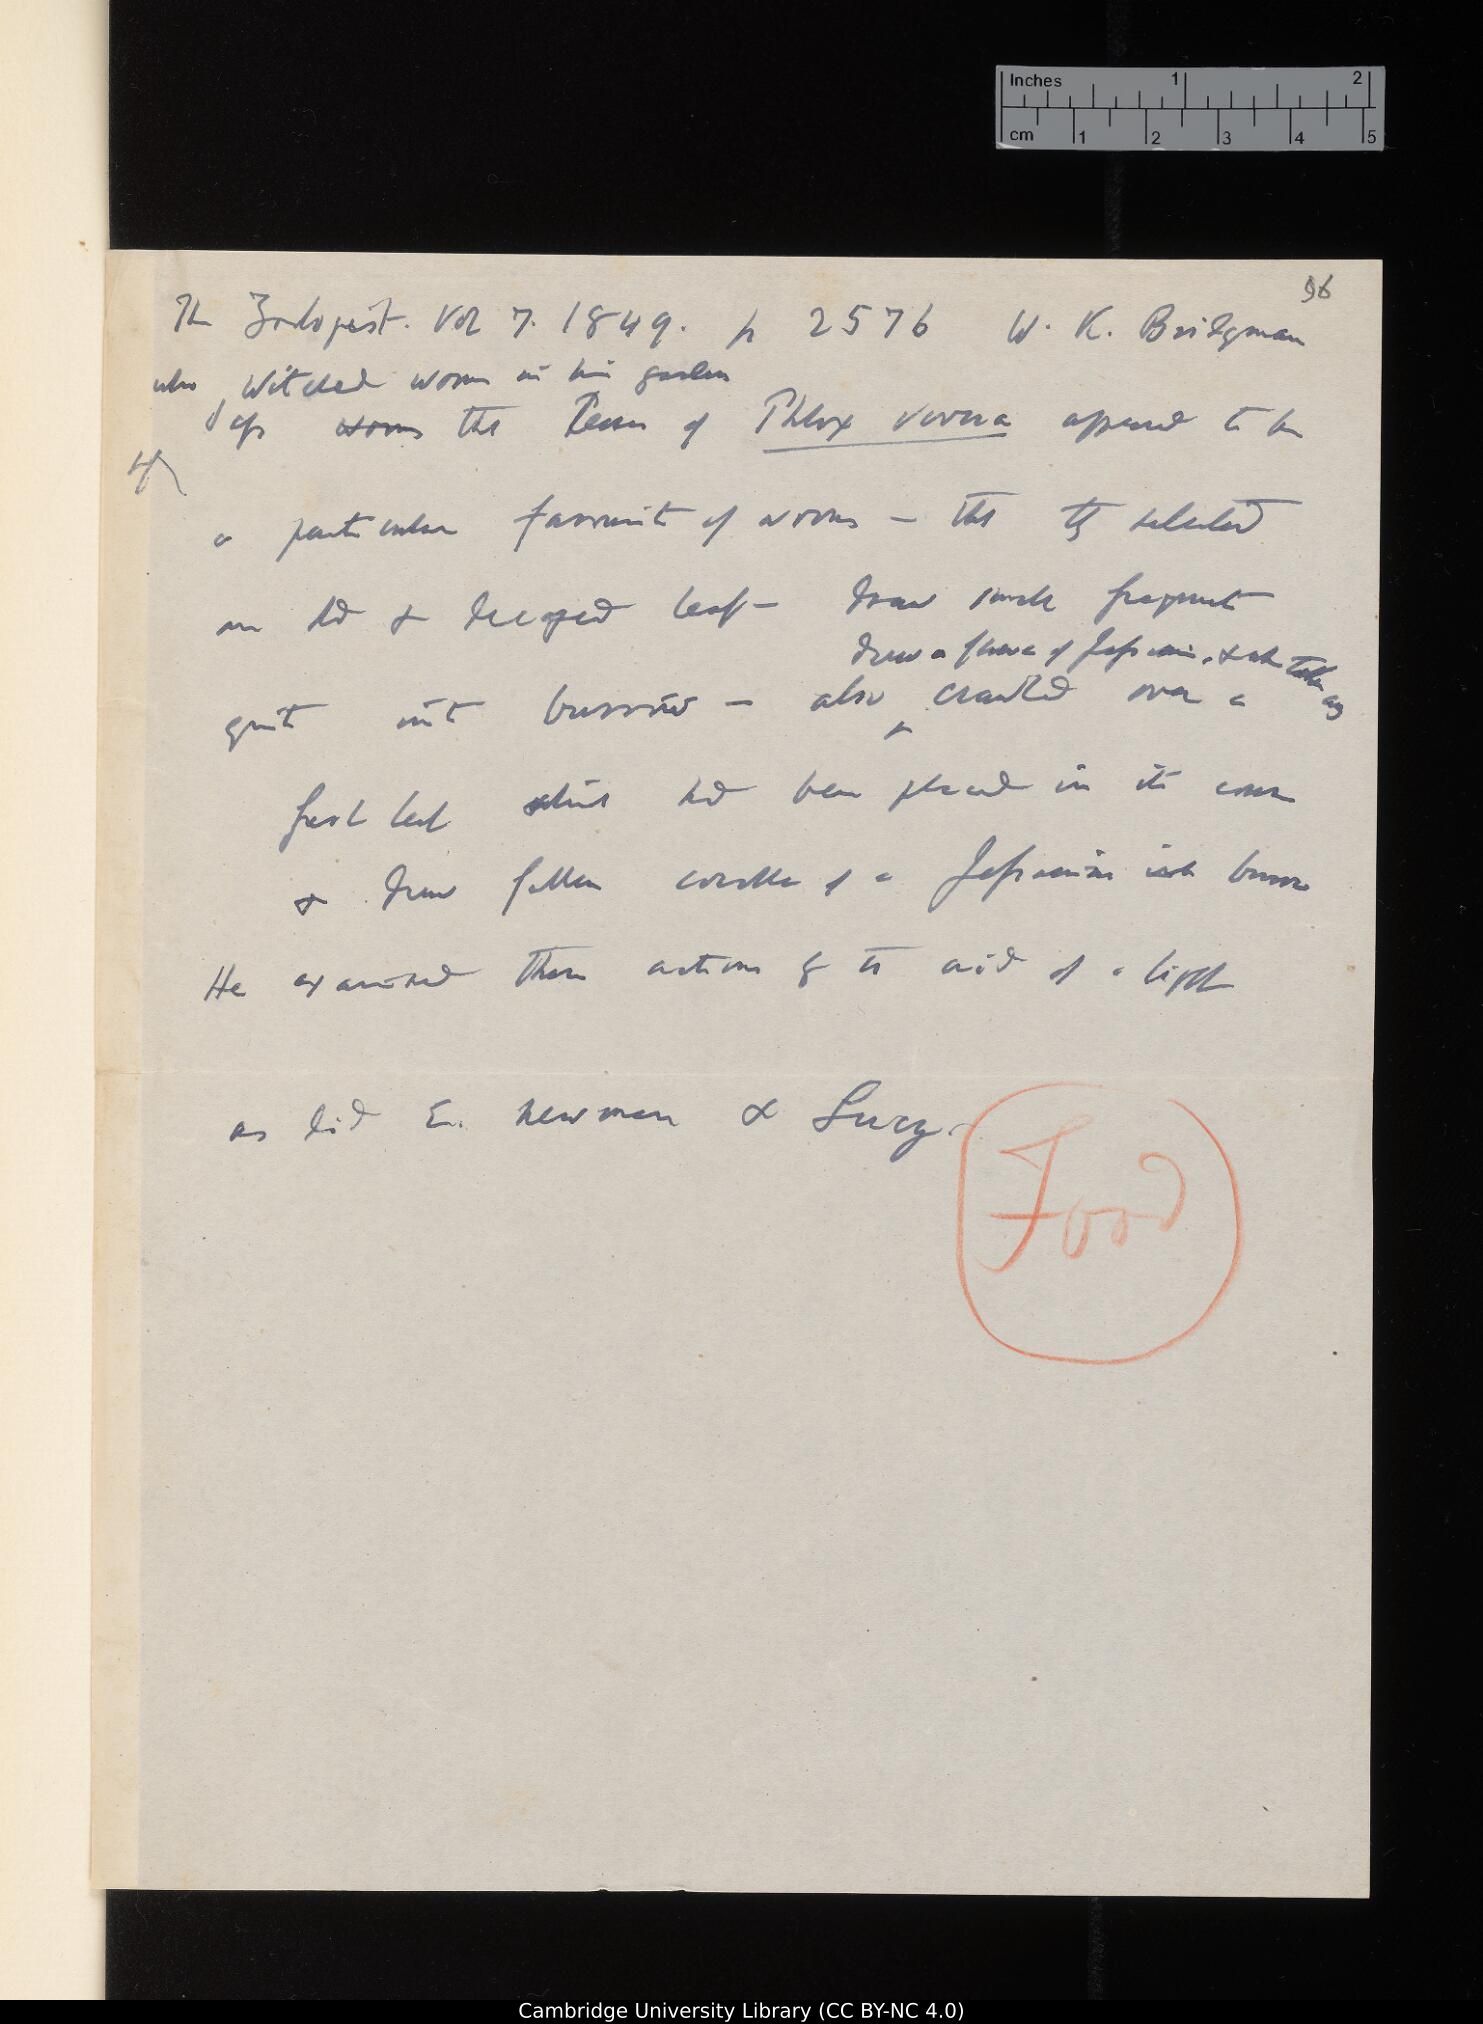 Inches 1 2
cm 1 2 3 4 5
96
The Zoologist. Vol 7. 1849. p 2576 W. K. Bridgman
who watched worms in his garden
says worms the leaves of Phlox verna appeared to be
a particular favourite of worms — that they selected
an old & decayed leaf — draw small fragment
drew a flower of Jessamine, & when taken away
quite into burrow — also crawled over a
fresh leaf which had been placed in its course
& drew fallen corolla of a Jessamine into burrow
He examined these actions by the aid of a light
as did E. Newman & Lucy.
Food
Cambridge University Library (CC BY-NC 4.0)